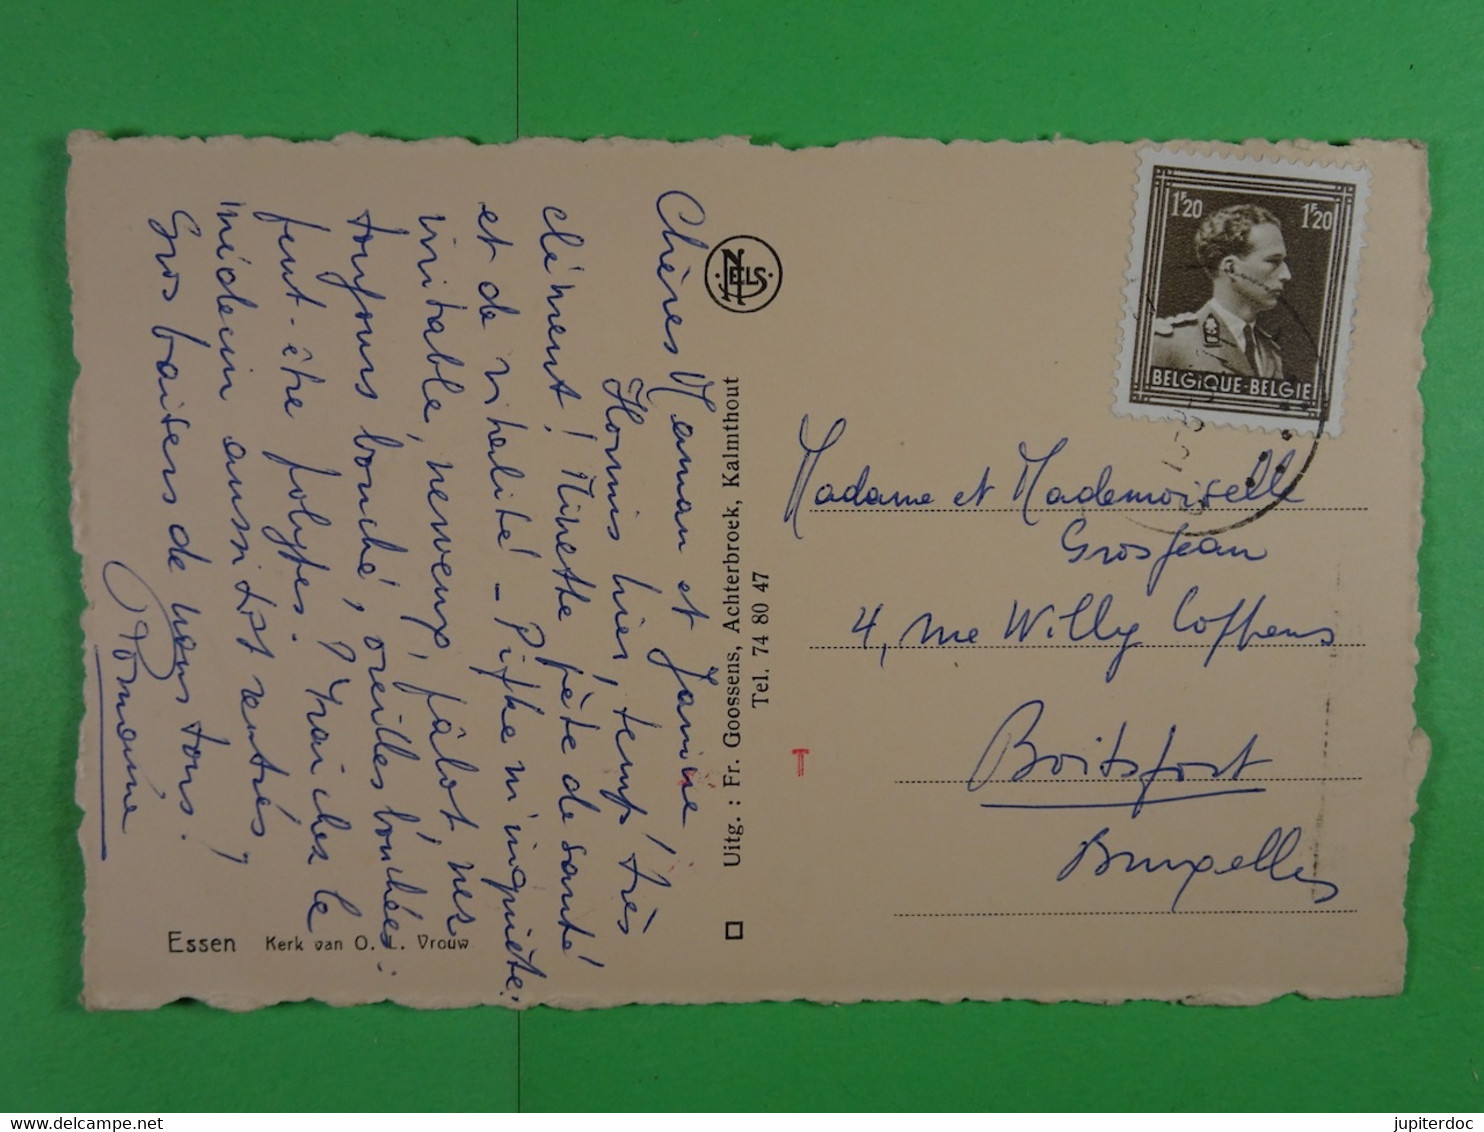 Chères Maman et Janine
Hormis hier, temps très
clément! Minette pète de santé
et de vitalité! - Pifke m'inquiète:
irritable, nerveux, pâlot, nez
toujours bouché, oreilles bouchées:
peut-être polypes. J'irai chez le
médecin aussitôt rentrés,
Gros baisers de nous tous.
Romaine
Essen Kerk van O. L. Vrouw
NELS
Uitg. : Fr. Goossens, Achterbroek, Kalmthout
Tel. 74 80 47
1F20 1F20
BELGIQUE-BELGIE
Madame et Mademoiselle
Grosjean
4, rue Willy Coppens
Boitsfort
Bruxelles
jupiterdoc
www.delcampe.net